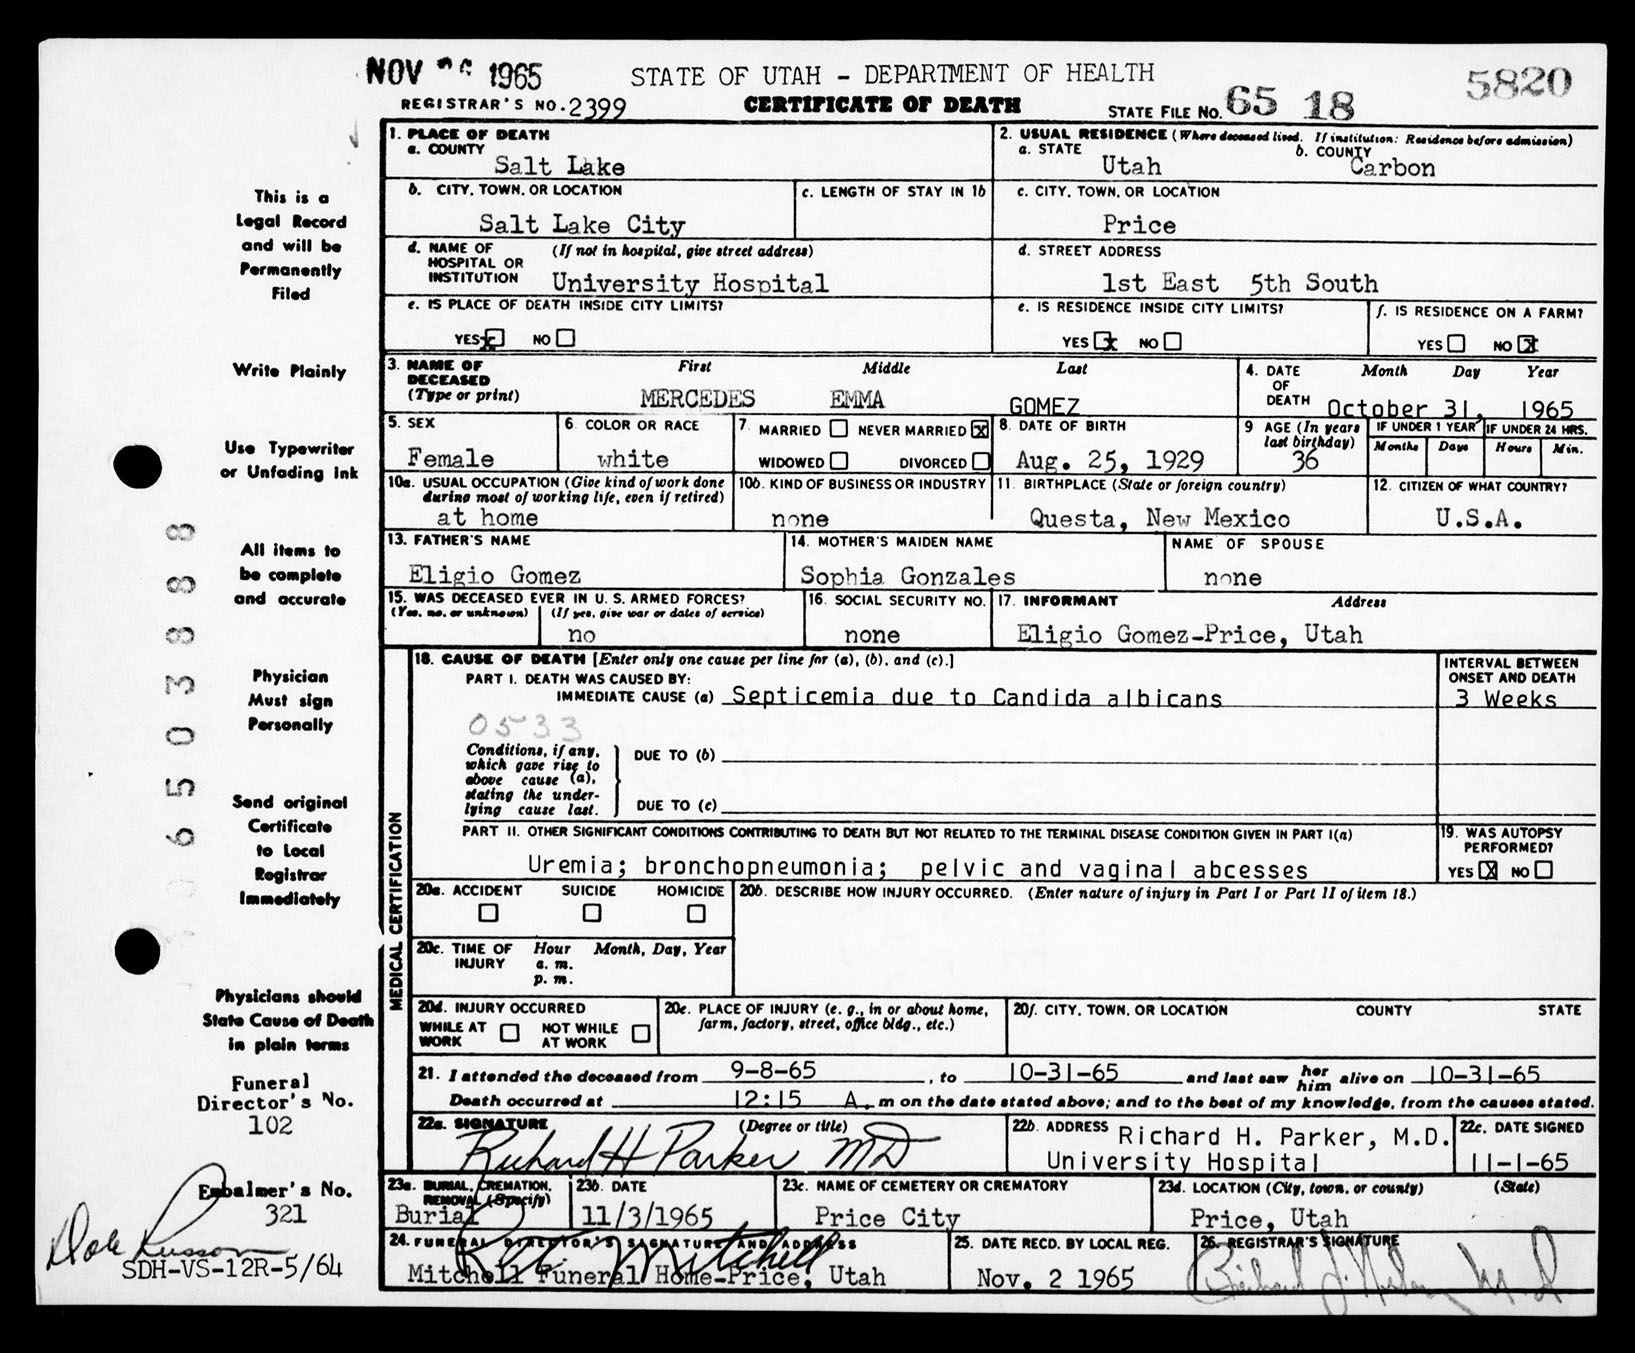 NOV 1965 STATE OF UTAH - DEPARTMENT OF HEALTH 5820
REGISTRAR'S NO. 2399 CERTIFICATE OF DEATH STATE FILE NO. 65 18
This is a
Legal Record
and will be
Permanently
Filed
Write Plainly
Use Typewriter
or Unfading ink
All items to
be complete
and accurate
Physician
Must sign
Personally
Send original
Certificate
to Local
Registrar
Immediately
Physicians should
State Cause of Death
in plain terms
Funeral
Director's No.
102
Embalmer's No.
321
Dale Russon
SDH-VS-12R-5/64
6 5 0 3 8 8 8
1. PLACE OF DEATH
a. COUNTY
Salt Lake
2. USUAL RESIDENCE (Where deceased lived. If institution: Residence before admission)
a. STATE b. COUNTY
Utah Carbon
b. CITY, TOWN, OR LOCATION
Salt Lake City
c. LENGTH OF STAY IN 1b
c. CITY, TOWN, OR LOCATION
Price
d. NAME OF HOSPITAL OR INSTITUTION (If not in hospital, give street address)
University Hospital
d. STREET ADDRESS
1st East 5th South
e. IS PLACE OF DEATH INSIDE CITY LIMITS?
YES x NO
e. IS RESIDENCE INSIDE CITY LIMITS?
YES x NO
f. IS RESIDENCE ON A FARM?
YES NO X
3. NAME OF DECEASED (Type or print) First Middle Last
MERCEDES EMMA GOMEZ
4. DATE OF DEATH Month Day Year
October 31, 1965
5. SEX
Female
6. COLOR OR RACE
white
7. MARRIED NEVER MARRIED X
WIDOWED DIVORCED
8. DATE OF BIRTH
Aug. 25, 1929
9 AGE (In years last birthday)
36
IF UNDER 1 YEAR IF UNDER 24 HRS.
Months Days Hours Min.
10a. USUAL OCCUPATION (Give kind of work done during most of working life, even if retired)
at home
10b. KIND OF BUSINESS OR INDUSTRY
none
11. BIRTHPLACE (State or foreign country)
Questa, New Mexico
12. CITIZEN OF WHAT COUNTRY?
U.S.A.
13. FATHER'S NAME
Eligio Gomez
14. MOTHER'S MAIDEN NAME
Sophia Gonzales
NAME OF SPOUSE
none
15. WAS DECEASED EVER IN U.S. ARMED FORCES?
(Yes, no, or unknown) (If yes, give war or dates of service)
no
16. SOCIAL SECURITY NO.
none
17. INFORMANT Address
Eligio Gomez-Price, Utah
MEDICAL CERTIFICATION
18. CAUSE OF DEATH [Enter only one cause per line for (a), (b), and (c).]
PART I. DEATH WAS CAUSED BY:
IMMEDIATE CAUSE (a) Septicemia due to Candida albicans
INTERVAL BETWEEN ONSET AND DEATH
3 Weeks
0533
Conditions, if any, which gave rise to above cause (a), stating the underlying cause last.
DUE TO (b)
DUE TO (c)
PART II. OTHER SIGNIFICANT CONDITIONS CONTRIBUTING TO DEATH BUT NOT RELATED TO THE TERMINAL DISEASE CONDITION GIVEN IN PART I(a)
Uremia; bronchopneumonia; pelvic and vaginal abcesses
19. WAS AUTOPSY PERFORMED?
YES X NO
20a. ACCIDENT SUICIDE HOMICIDE
20b. DESCRIBE HOW INJURY OCCURRED. (Enter nature of injury in Part I or Part II of item 18.)
20c. TIME OF INJURY Hour Month, Day, Year
a. m.
p. m.
20d. INJURY OCCURRED
WHILE AT WORK NOT WHILE AT WORK
20e. PLACE OF INJURY (e. g., in or about home, farm, factory, street, office bldg., etc.)
20f. CITY, TOWN, OR LOCATION COUNTY STATE
21. I attended the deceased from 9-8-65, to 10-31-65 and last saw her him alive on 10-31-65
Death occurred at 12:15 A. m on the date stated above; and to the best of my knowledge, from the causes stated.
22a. SIGNATURE (Degree or title)
Richard H Parker MD
22b. ADDRESS Richard H. Parker, M.D.
University Hospital
22c. DATE SIGNED
11-1-65
23a. BURIAL, CREMATION, REMOVAL (Specify)
Burial
23b. DATE
11/3/1965
23c. NAME OF CEMETERY OR CREMATORY
Price City
23d. LOCATION (City, town, or county) (State)
Price, Utah
24. FUNERAL DIRECTOR'S SIGNATURE AND ADDRESS
Mitchell
Mitchell Funeral Home-Price, Utah
25. DATE RECD. BY LOCAL REG.
Nov. 2 1965
26. REGISTRAR'S SIGNATURE